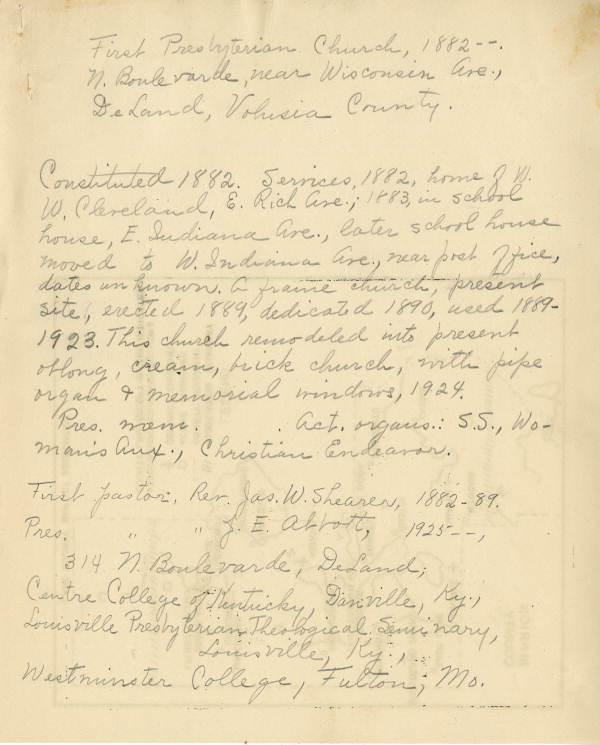 First Presbyterian Church, 1882--.
N. Boulevarde, near Wisconsin Ave.,
DeLand, Volusia County.
Constituted 1882. Services, 1882, home of W.
W. Cleveland, E. Rich Ave.; 1883, in school
house, E. Indiana Ave., later school house
moved to W. Indiana Ave., near post office,
dates unknown. A frame church, present
site, erected 1889, dedicated 1890, used 1889-
1923. This church remodeled into present
oblong, cream, brick church, with pipe
organ & memorial windows, 1924.
Pres. mem. . Act. organs.: S.S., Wo-
man's Aux., Christian Endeavor.
First pastor, Rev. Jas. W. Shearer, 1882-89.
Pres. " " J. E. Abbott, 1925--,
314 N. Boulevarde, DeLand;
Centre College of Kentucky, Danville, Ky.,
Louisville Presbyterian Theological Seminary,
Louisville, Ky.,
Westminster College, Fulton, Mo.